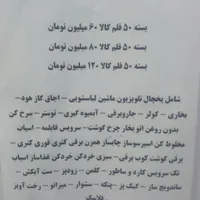 بسته ۵۰ قلم کالا ۶۰ میلیون تومان
بسته ۵۰ قلم کالا ۸۰ میلیون تومان
بسته ۵۰ قلم کالا ۱۲۰ میلیون تومان
شامل یخچال تلویزیون ماشین لباسشویی – اجاق گاز هود–
بخاری – کولر – جاروبرقی – آبمیوه گیری – توستر – سرخ کن
بدون روغن اتو بخار چرخ گوشت – سرویس قابلمه – اسیاب
مخلوط کن اسپرسوساز چایساز همزن برقی کتری قوری کتری –
برقی گوشت کوب برقی – سبزی خردکن خردکن غذاساز اسیاب
تک سرویس کارد و ساطور – کلمن – زودپز – ست آبکش –
ساندویچ ساز – کیک پز – پنکه – سشوار – میزاتو – رخت آویز